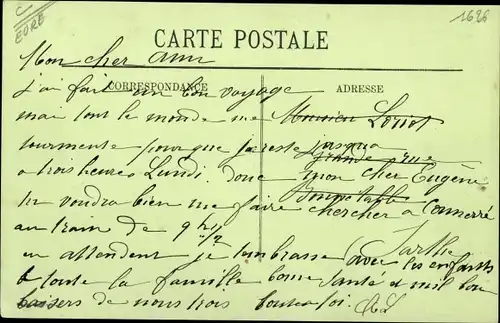 C
EURE
1626
CARTE POSTALE
Mon cher ami
CORRESPONDANCE
ADRESSE
j'ai fait un bon voyage
mai tout le monde me
Monsieur Loriot
tourmente pour que je reste jusqua
Grande rue
a trois heures Lundi. Donc mon cher Eugène
Bonnétable
tu voudra bien me faire chercher a Connerré
au train de 9 h 1/2
Sarthe
en attendent je tembrasse avec les enfants
& toute la famille bonne santé et mil bon
baisers de nous trois toute a toi.